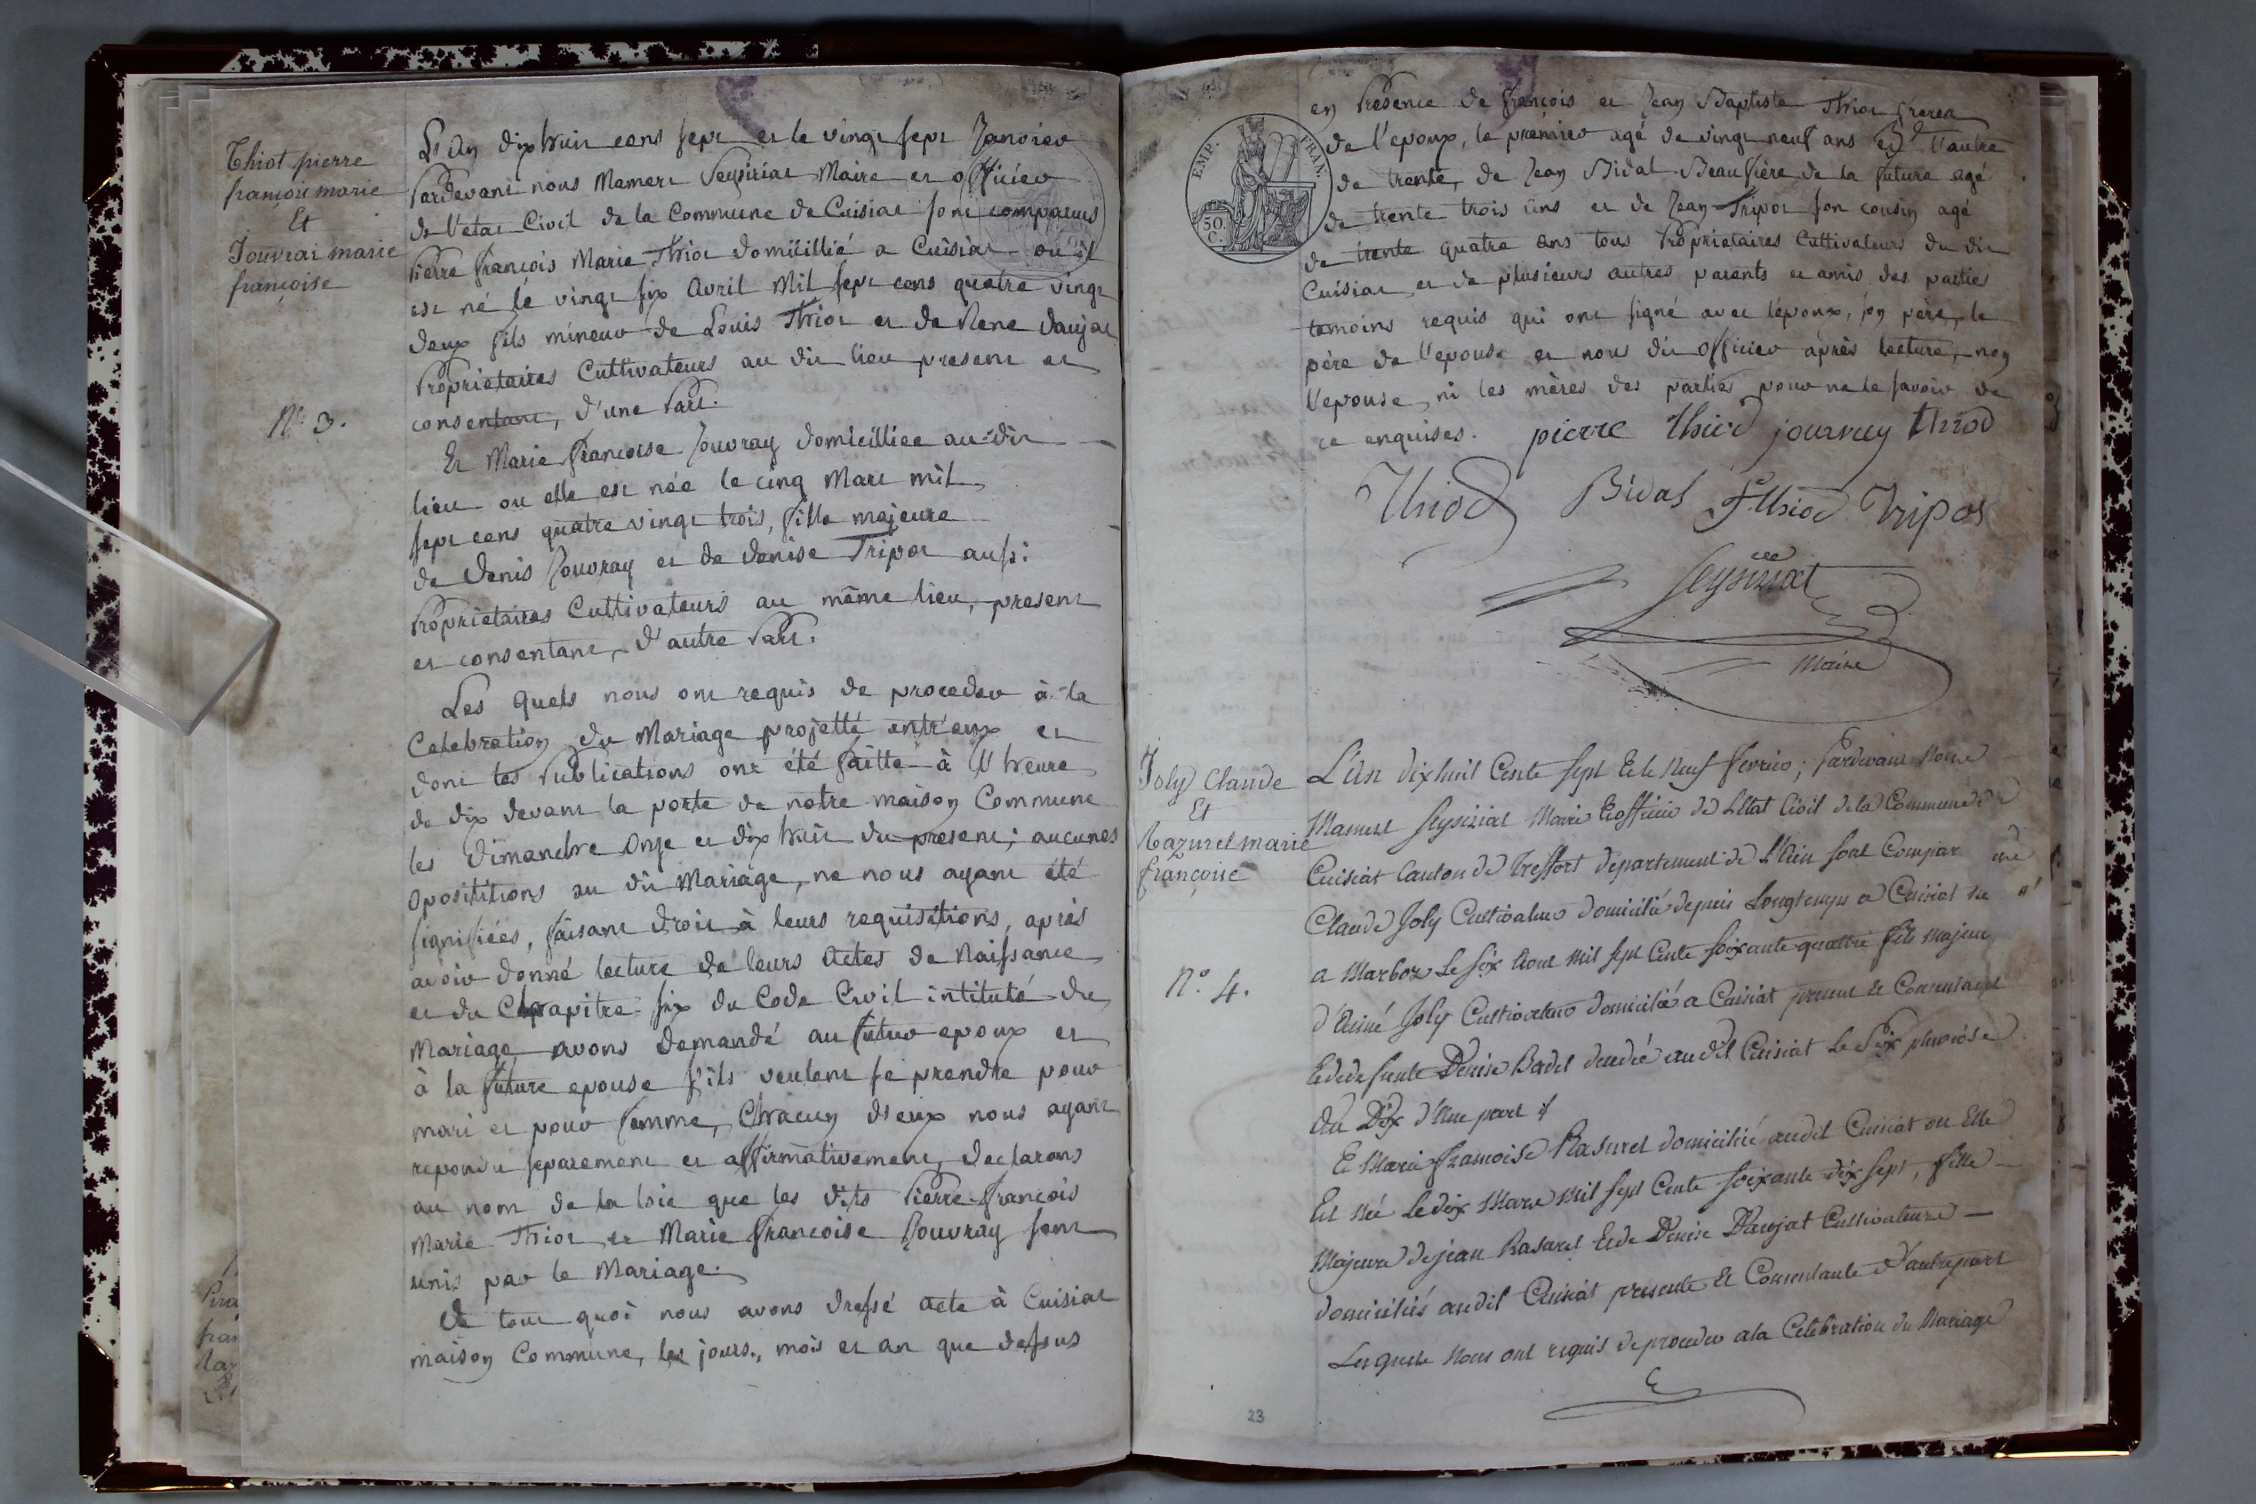 Thiot pierre
françois marie
Et
Jouvrai marie
françoise
N.º 3.
L'an dix huit cens sept et le vingt sept Janvier
Pardevant nous Mamert Seysiriat Maire et officier
de l'etat Civil de la Commune de Cuisiat sont comparus
Pierre françois Marie Thiot domicillié a Cuisiat ou il
est né le vingt six avril mil sept cens quatre vingt
deux fils mineur de Louis Thiot et de Rene daujat
Proprietaires Cultivateurs au dit lieu present et
consentant, d'une Part.
Et Marie françoise Jouvray domicilliee au dit
lieu ou elle est née le cinq Mars mil
sept cens quatre vingt trois, fille majeure
de denis Jouvray et de denise Tripot aussi
Proprietaires Cultivateurs au même lieu, present
et consentant, d'autre Part.
Les quels nous ont requis de proceder à la
Celebration du Mariage projetté entr'eux et
dont les Publications ont été faitte à l'heure
de dix devant la porte de notre maison Commune
les dimanche onze et dix huit du present; aucunes
opositions au dit Mariage, ne nous ayant été
signifiées, faisant droit à leurs requisitions, après
avoir donné lecture de leurs actes de Naissance
et du Chapitre six du Code Civil intitulé du
Mariage avons demandé au futur epoux et
à la future epouse s'ils veulent se prendre pour
mari et pour femme, Chacun d'eux nous ayant
repondu separement et affirmativement, declarons
au nom de la loie que les dits Pierre françois
Marie Thiot et Marie françoise Jouvray sont
unis par le Mariage.
De tout quoi nous avons dressé acte à Cuisiat
maison Commune, les jours, mois et an que dessus
EMP. FRAN.
50.
C.
en Presence de françois et Jean Baptiste Thiot freres
de l'epoux, le premier agé de vingt neuf ans et l'autre
de trente, de Jean Bidal Beaufrère de la future agé
de trente trois ans et de Jean Tripot son cousin agé
de trente quatre ans tous Proprietaires Cultivateurs du dit
Cuisiat et de plusieurs autres parents et amis des parties
temoins requis qui ont signé avec l'époux, son père, le
père de l'epouse et nous dit officier après lecture, non
l'epouse, ni les mères des parties pour ne le savoir de
ce enquises. pierre thiod jouvray thiod
Thiod Bidal f. thiod Tripos
Seysiriat
Maire
Joly Claude
Et
Razurel marie
françoise
N.º 4.
L'an dix huit Cents sept Et le Neuf fevrier; Pardevant Nous
Mamert Seysiriat Maire Et officier de L'Etat Civil de la Commune de
Cuisiat Canton de Treffort departement de L'Ain sont Compar
Claude Joly Cultivateur domicilié depuis Longtemps a Cuisiat né
a Marboz Le six Aout mil sept Cents soixante quattre fils Majeur
d'Aimé Joly Cultivateur domicilié a Cuisiat present Et Consentant
Et de defunte Denise Badel decedée audit Cuisiat Le Six pluviôse
An Dix d'Une part
Et Marie françoise Rasurel domiciliée audit Cuisiat ou Elle
Est Née Le dix Mars Mil Sept Cents Soixante dix Sept, fille
Majeure de jean Rasurel Et de Denise Daujat Cultivateurs
domiciliés audit Cuisiat presente Et Consentante d'autre part
Lesquels Nous ont requis de proceder a la Celebration du Mariage
23